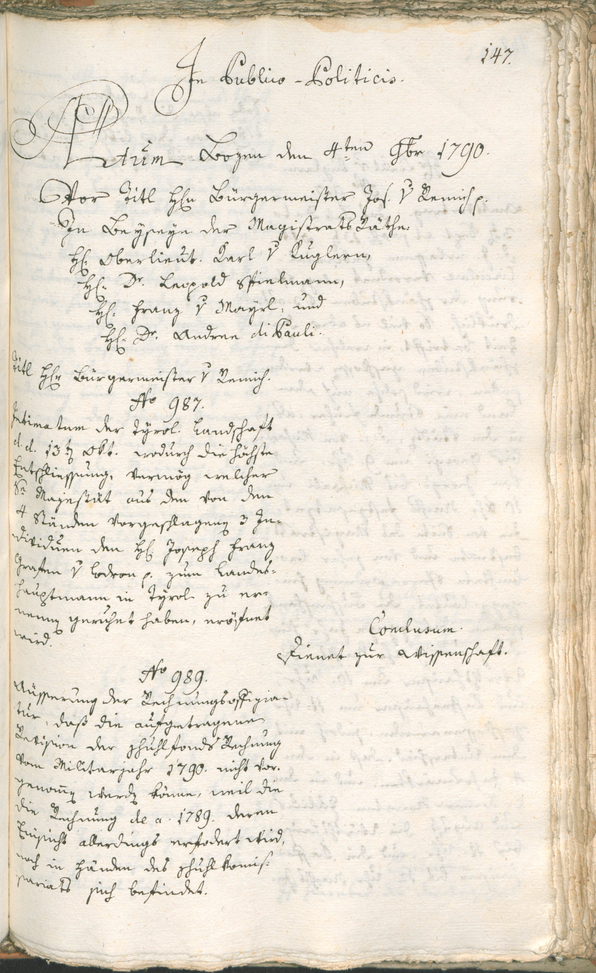 147.
In Publico-Politicis.
Actum Bozen den 4ten 9br 1790.
Vor Titl Hhn Bürgermeister Jos. v Remich p.
In Beyseyn der Magistrats Räthe
Hh. Oberlieut. Carl v Kuglern,
Hh. Dr. Leopold Spielmann,
Hh. Franz v Mayrl, und
Hh. Dr. Andree di Pauli.
Titl Hhn Bürgermeister v Remich.
No 987.
Intimatum der Tyrol. Landschaft
d.d. 13t Okt. wodurch die höchste
Entschliessung, vermög welcher
Se Majestät aus den von den
4 Ständen vorgeschlagene 3 In-
dividuen den Hh. Joseph Franz
Grafen v Lodron p. zum Landes-
hauptmann in Tyrol zu er-
nenn geruhet haben, eröfnet
wird.
Conclusum.
Dienet zur Wissenschaft.
No 989.
Äusserung der Rechnungsoffizia-
tur, daß die aufgetragene
Revision der Schulfonds Rechnung
vom Militarjahr 1790. nicht vor-
genomm werdn könne, weil die
die Rechnung de a. 1789. deren
Einsicht allerdings erfodert wird,
noch in Händen des Schulkomis-
sariats sich befindet.